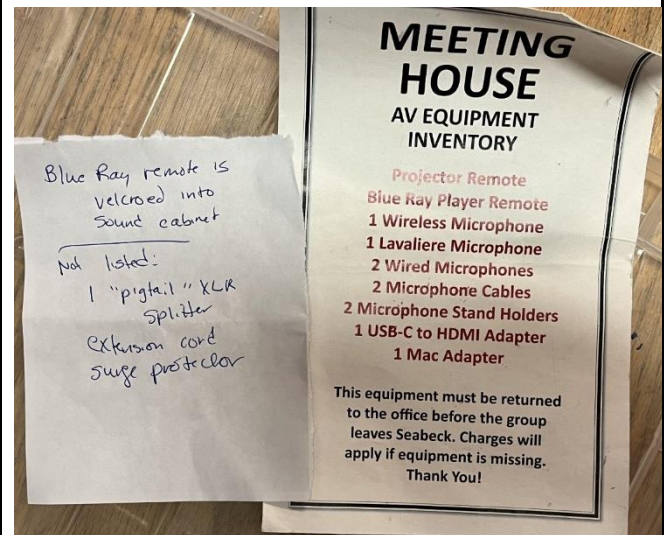 Blue Ray remote is
velcroed into
Sound cabinet
Not listed:
1 "pigtail" XLR
Splitter
extension cord
surge protector
MEETING
HOUSE
AV EQUIPMENT
INVENTORY
Projector Remote
Blue Ray Player Remote
1 Wireless Microphone
1 Lavaliere Microphone
2 Wired Microphones
2 Microphone Cables
2 Microphone Stand Holders
1 USB-C to HDMI Adapter
1 Mac Adapter
This equipment must be returned
to the office before the group
leaves Seabeck. Charges will
apply if equipment is missing.
Thank You!